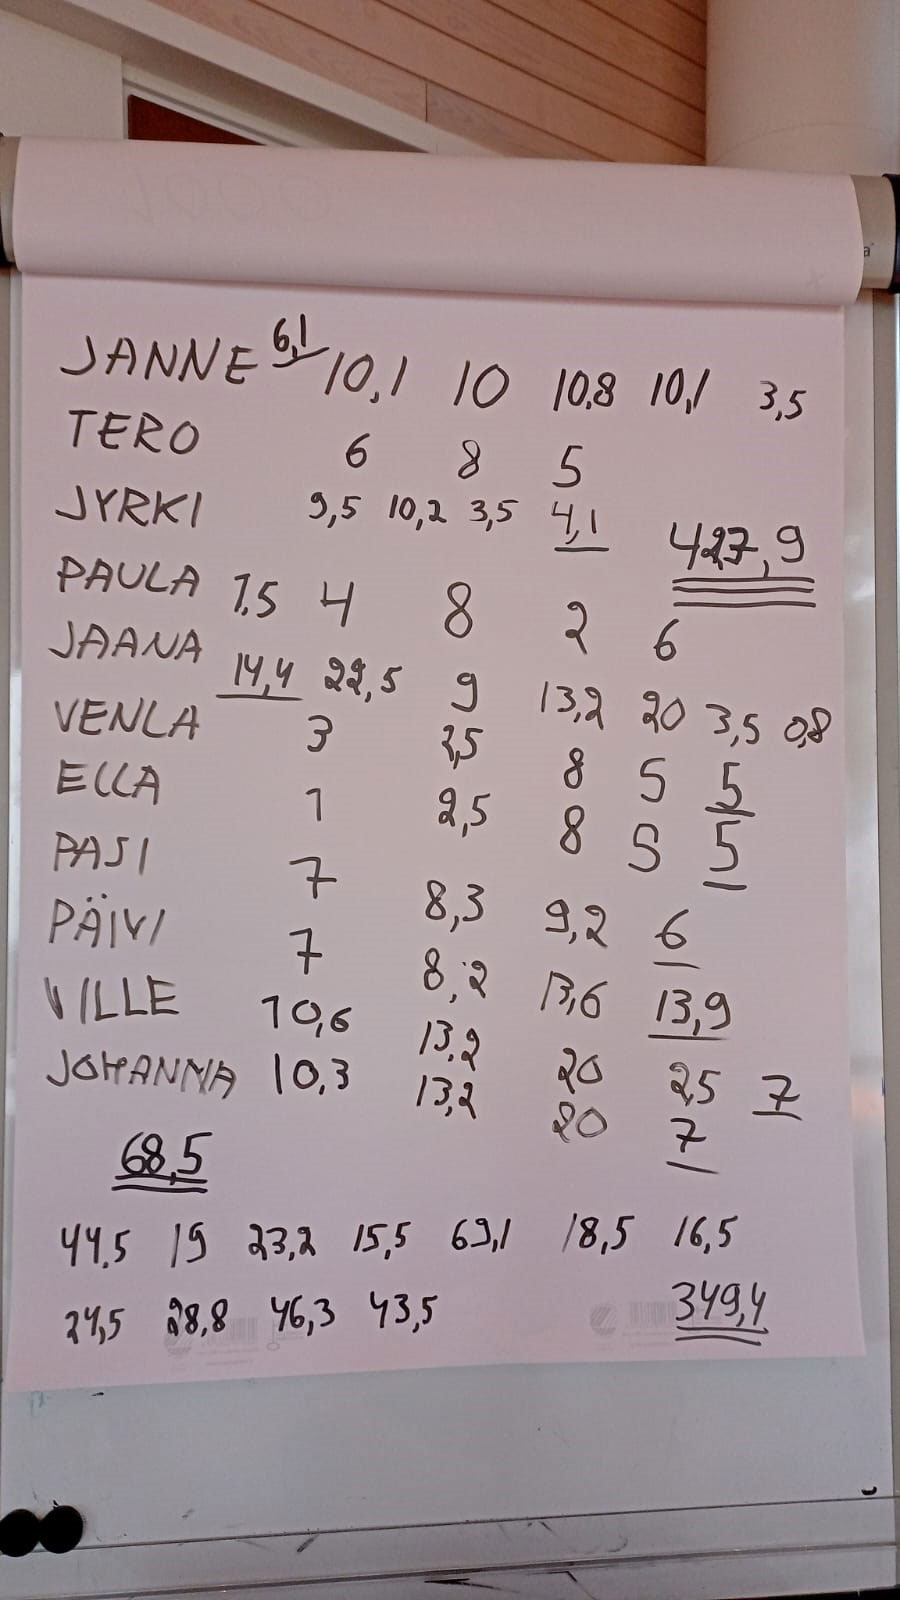 JANNE 6,1 10,1 10 10,8 10,1 3,5
TERO 6 8 5
JYRKI 9,5 10,2 3,5 4,1
427,9
PAULA 1,5 4 8 2 6
JAANA 14,4 22,5 9 13,2 20 3,5 0,8
VENLA 3 2,5 8 5 5
ELLA 1 2,5 8 5 5
PASI 7 8,3 9,2 6
PÄIVI 7 8,2 13,6 13,9
VILLE 10,6 13,2 20 2,5 7
JOHANNA 10,3 13,2 20 7
68,5
44,5 19 23,2 15,5 69,1 18,5 16,5
24,5 28,8 46,3 43,5 349,4